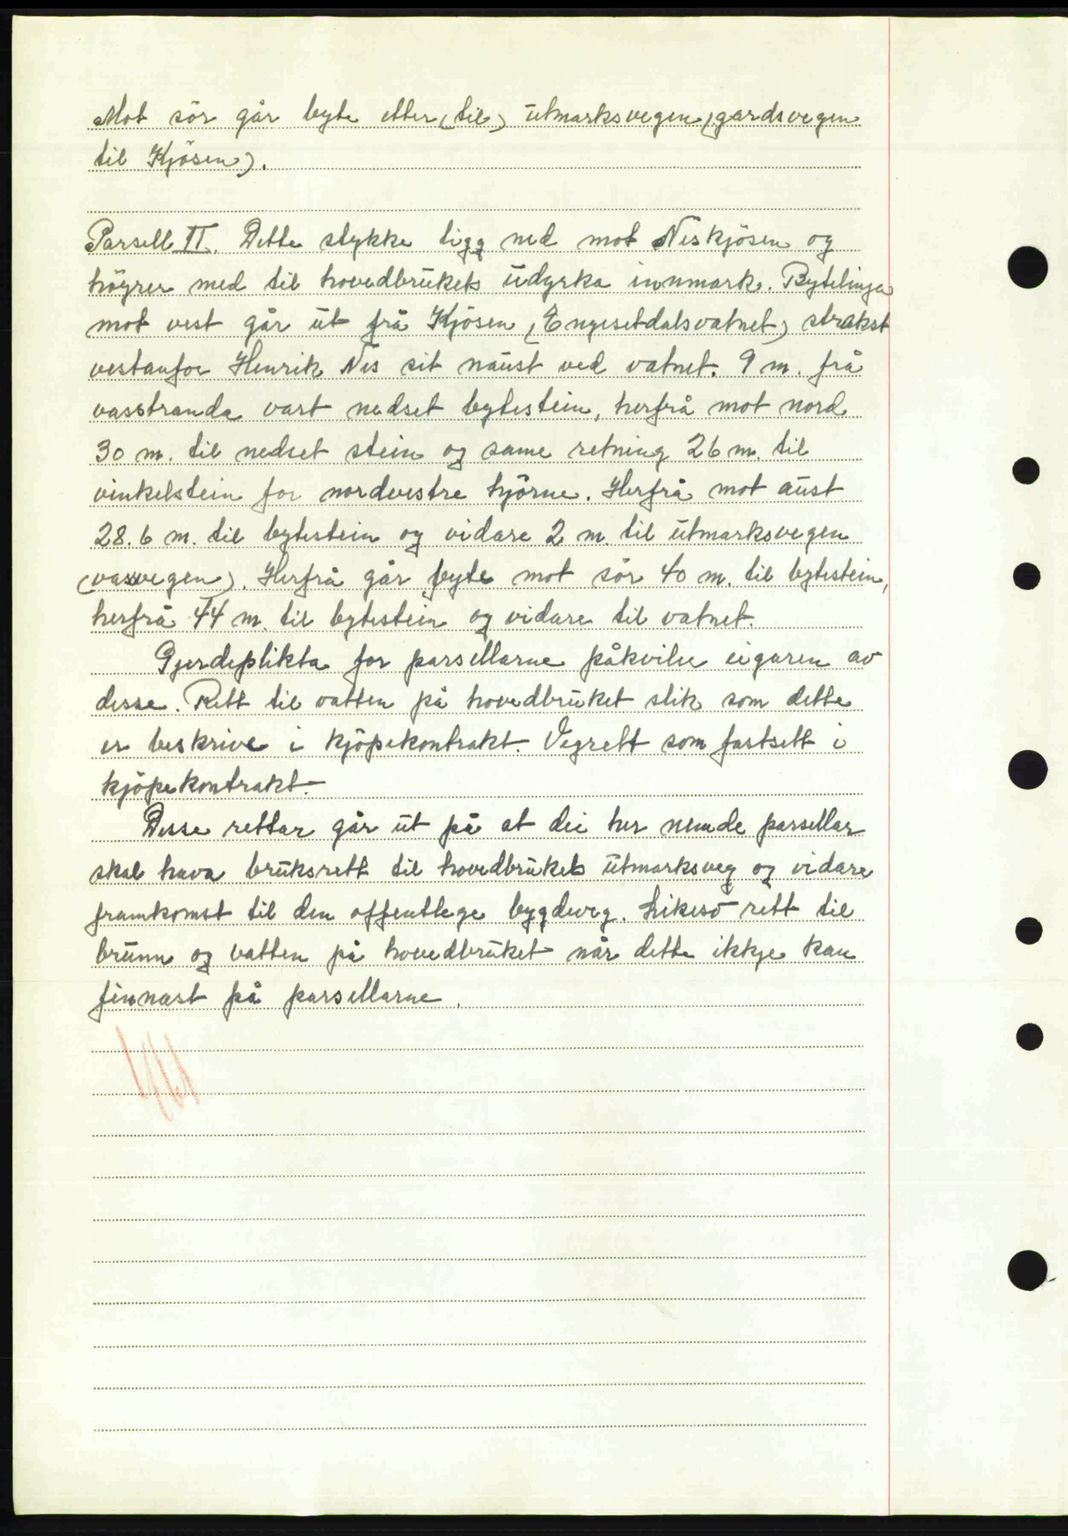 Mot sör går byte etter (til) utmarksvegen (gardsvegen
til Kjösen).
Parsell II. Dette stykke ligg ned mot Neskjösen og
höyrer med til hovedbrukets udyrka innmark. Bytelinja
mot vest går ut frå Kjösen (Engesetdalsvatnet) strakst
vestanfor Henrik Nes sit naust ved vatnet. 9 m. frå
vasstranda vart nedset bytestein, herfrå mot nord
30 m. til nedset stein og same retning 26 m. til
vinkelstein for nordvestre hjörne. Herfrå mot aust
28.6 m. til bytestein og vidare 2 m. til utmarksvegen
(vassvegen). Herfrå går byte mot sör 40 m. til bytestein,
herfrå 44 m. til bytestein og vidare til vatnet.
Gjerdeplikta for parsellarne påkviler eigaren av
desse. Rett til vatten på hovedbruket slik som dette
er beskrive i kjöpekontrakt. Vegrett som fastsett i
kjöpekontrakt.
Disse rettar går ut på at dei her nemde parsellar
skal hava bruksrett til hovedbrukets utmarksveg og vidare
framkomst til den offentlege bygdeveg. Likesö rett til
brunn og vatten på hovedbruket når dette ikkje kan
finnast på parsellarne.